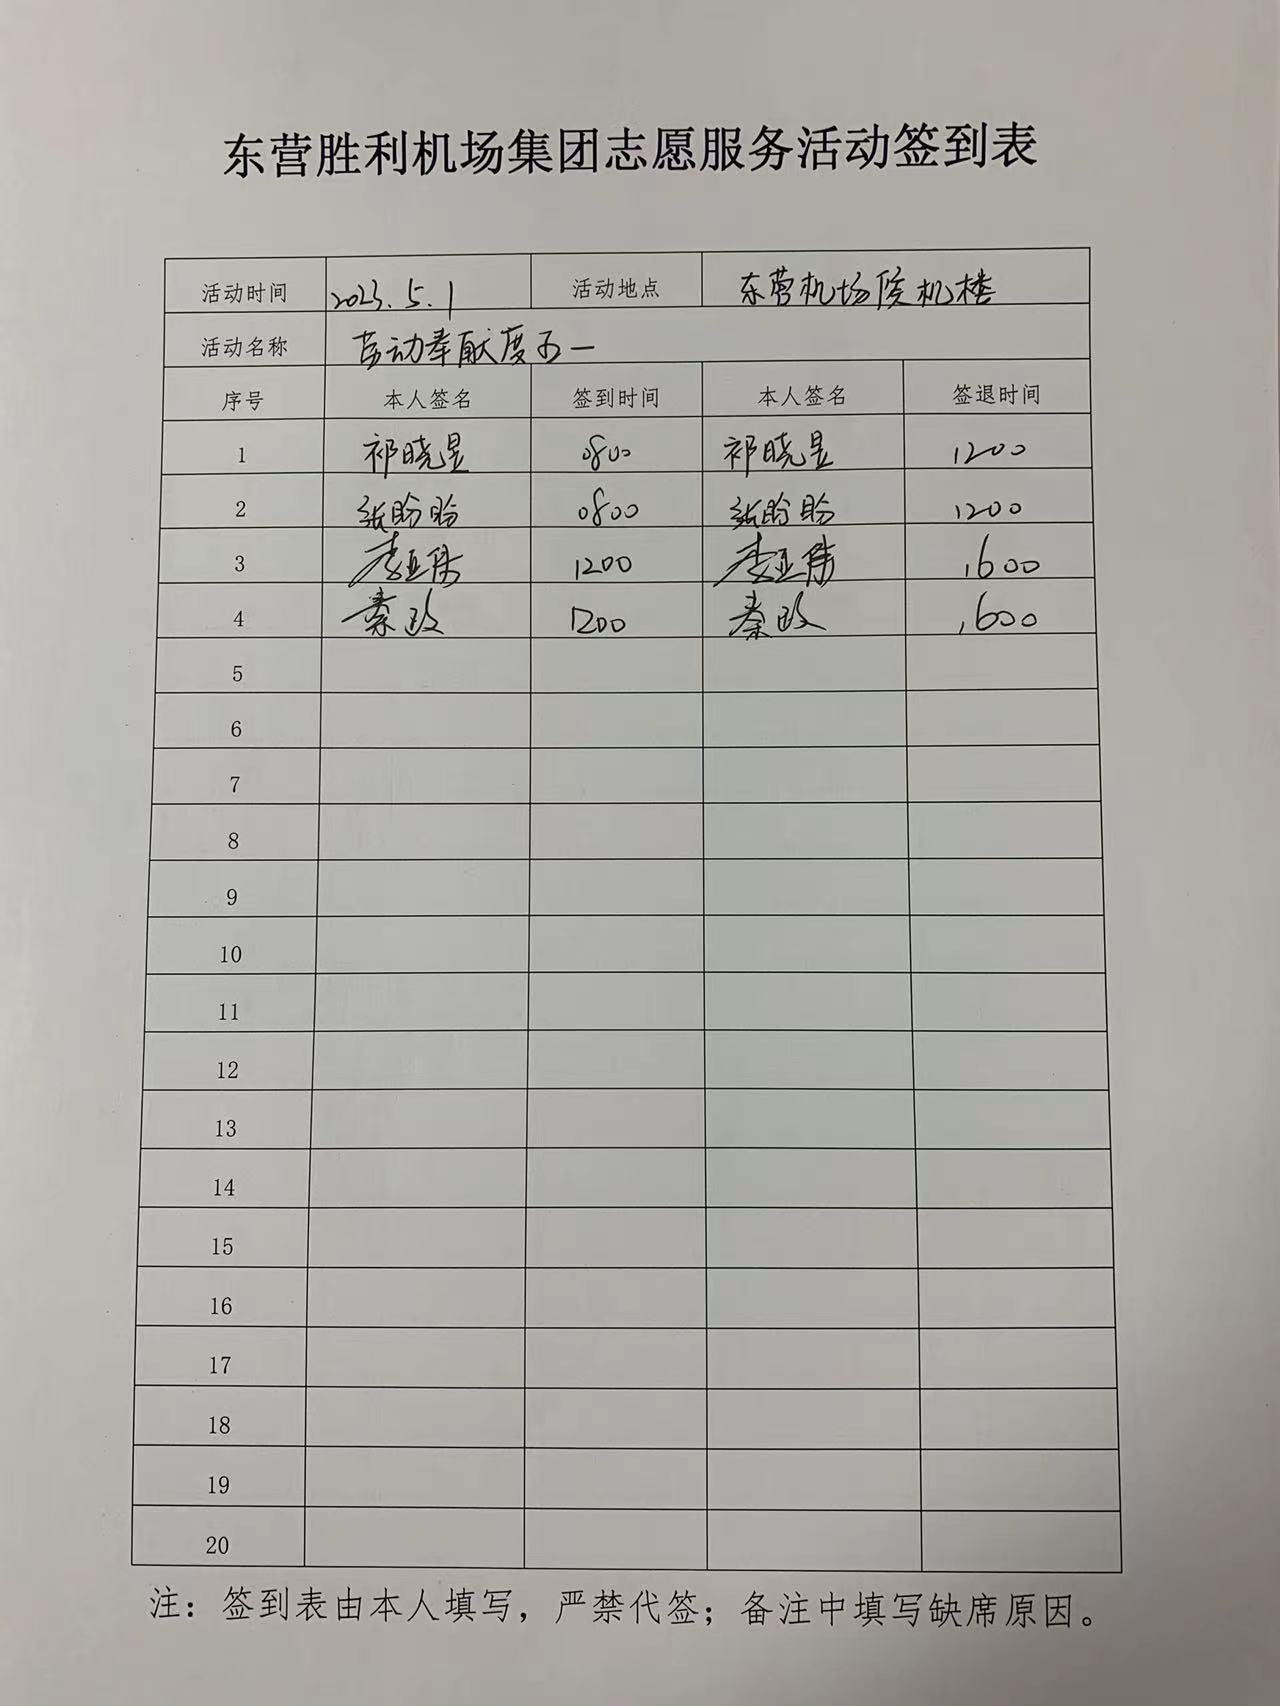 东营胜利机场集团志愿服务活动签到表
活动时间 2023.5.1 活动地点 东营机场候机楼
活动名称 劳动奉献度五一
序号 本人签名 签到时间 本人签名 签退时间
1 祁晓昱 0800 祁晓昱 1200
2 张盼盼 0800 张盼盼 1200
3 李亚伟 1200 李亚伟 1600
4 秦政 1200 秦政 1600
5
6
7
8
9
10
11
12
13
14
15
16
17
18
19
20
注：签到表由本人填写，严禁代签；备注中填写缺席原因。